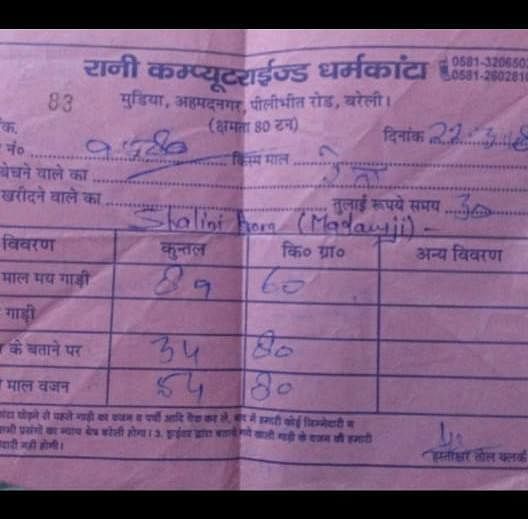 रानी कम्प्यूटराईज्ड धर्मकांटा 0581-320650
0581-2602810
83 मुडिया, अहमदनगर, पीलीभीत रोड, बरेली।
(क्षमता 80 टन) दिनांक 22
नं० किस्म माल
बेचने वाले का
खरीदने वाले का तुलाई रूपये समय 30
Shalini (Madauji)
विवरण कुन्तल कि० ग्रा० अन्य विवरण
माल मय गाड़ी 89 60
गाड़ी
के बताने पर 34 80
माल वजन 54 80
कांटा छोड़ने से पहले गाड़ी का वजन व पर्ची आदि चैक कर लें, बाद में हमारी कोई जिम्मेदारी न
सभी प्रसंगों का न्याय क्षेत्र बरेली होगा। 3. ड्राईवर द्वारा बताये गये खाली गाड़ी के वजन की हमारी
दारी नहीं होगी।
हस्ताक्षर तोल क्लर्क